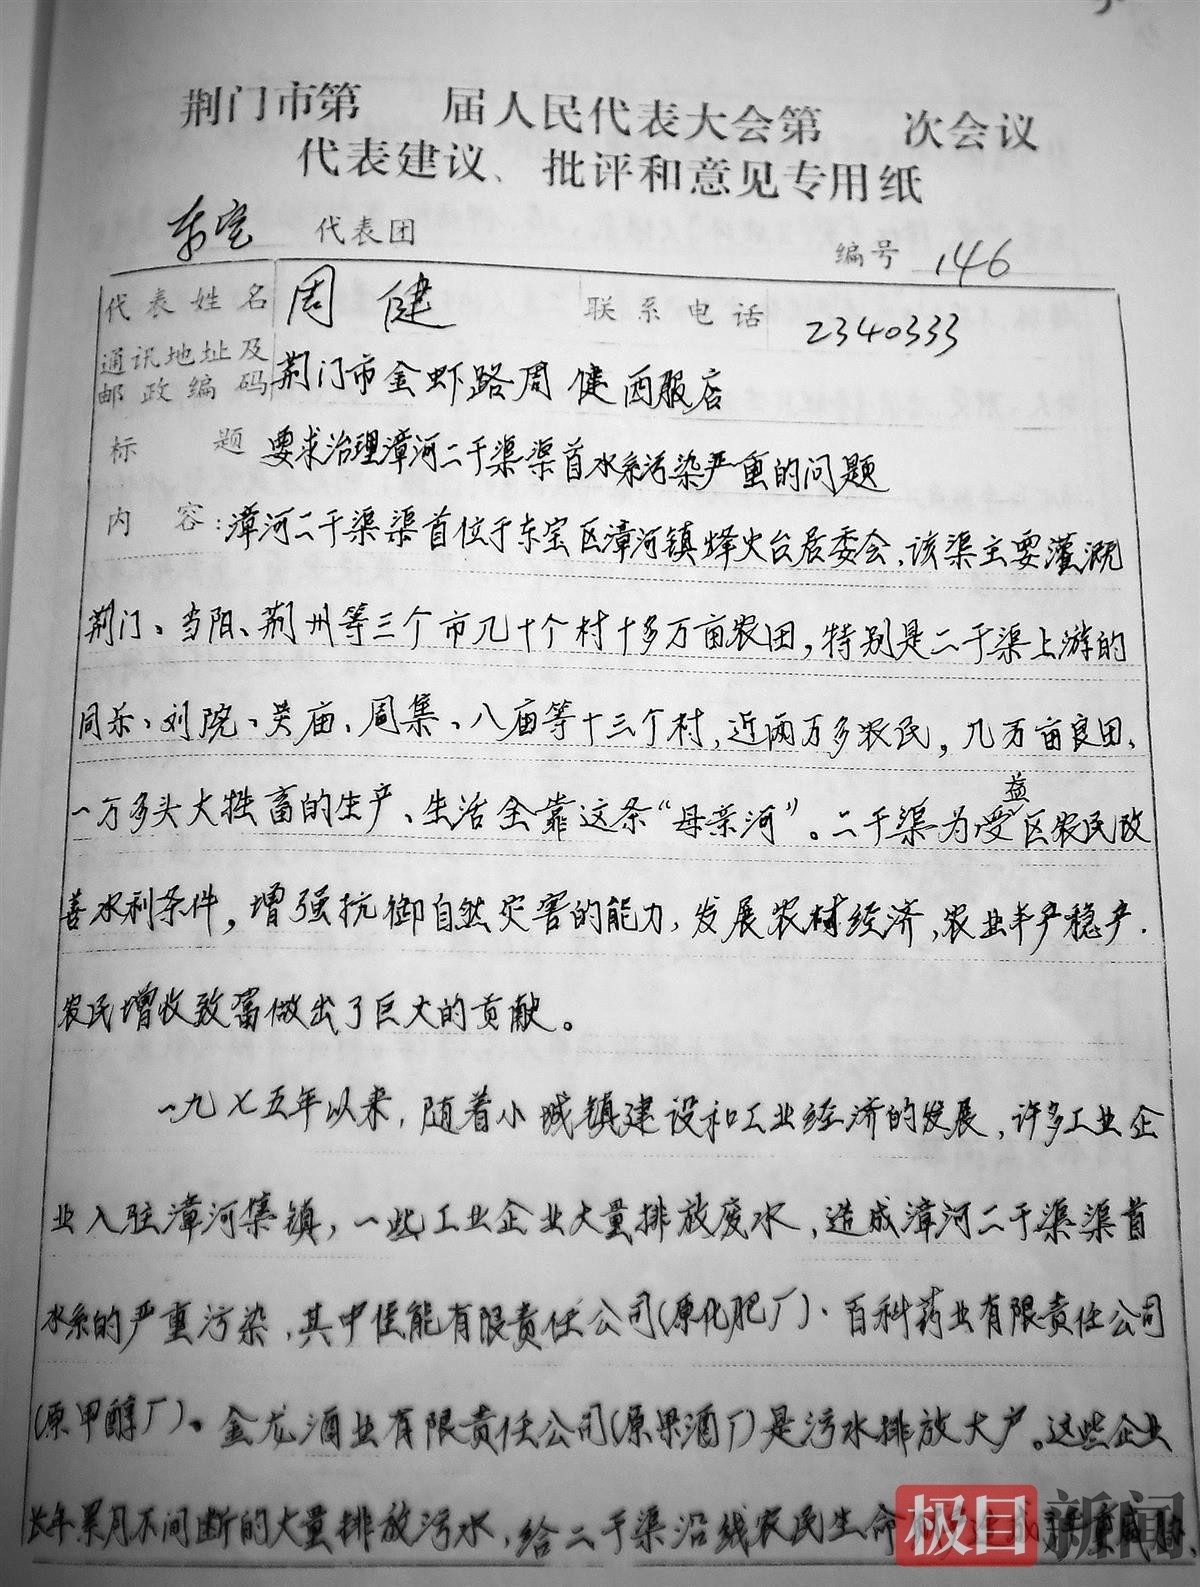 荆门市第 届人民代表大会第 次会议
代表建议、批评和意见专用纸
东宝 代表团 编号 146
代表姓名 周健 联系电话 2340333
通讯地址及
邮政编码 荆门市金虾路周健西服店
标题 要求治理漳河二干渠渠首水系污染严重的问题
内容:漳河二干渠渠首位于东宝区漳河镇烽火台居委会,该渠主要灌溉
荆门、当阳、荆州等三个市几十个村十多万亩农田,特别是二干渠上游的
同乐、刘院、关庙、周集、八庙等十三个村,近两万多农民,几万亩良田、
一万多头大牲畜的生产、生活全靠这条“母亲河”。二干渠为受益区农民改
善水利条件,增强抗御自然灾害的能力,发展农村经济,农业丰产稳产,
农民增收致富做出了巨大的贡献。
一九七五年以来,随着小城镇建设和工业经济的发展,许多工业企
业入驻漳河集镇,一些工业企业大量排放废水,造成漳河二干渠渠首
水系的严重污染,其中佳能有限责任公司(原化肥厂)、百科药业有限责任公司
(原甲醇厂)、金龙酒业有限责任公司(原果酒厂)是污水排放大户。这些企业
长年累月不间断的大量排放污水,给二干渠沿线农民生命
极目新闻